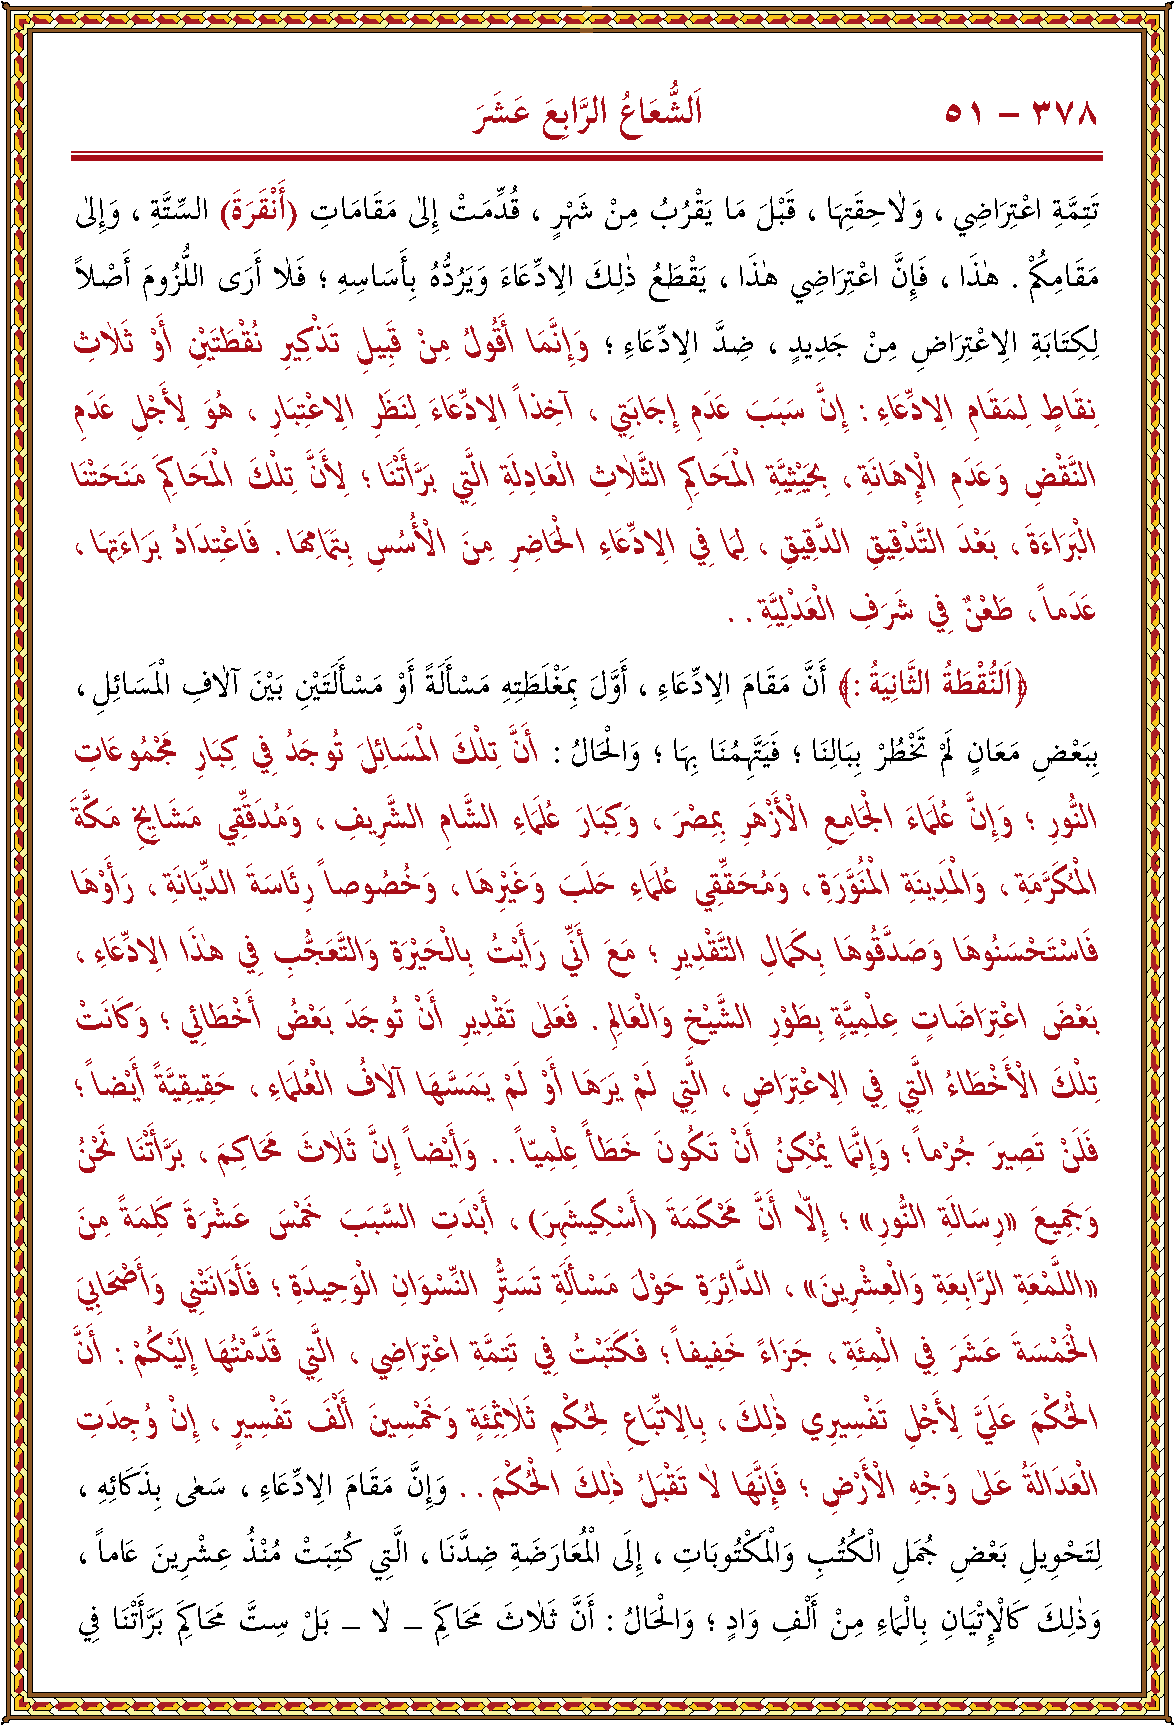 ٣٧٨ – ٥١ اَلشُّعَاعُ الرَّابِعَ عَشَرَ
تَتِمَّةِ اعْتِرَاضِي ، وَلَاحِقَتِهَا ، قَبْلَ مَا يَقْرُبُ مِنْ شَهْرٍ ، قُدِّمَتْ إِلٰى مَقَامَاتِ (أَنْقَرَةَ) السِّتَّةِ ، وَإِلٰى
مَقَامِكُمْ . هٰذَا ، فَإِنَّ اعْتِرَاضِي هٰذَا ، يَقْطَعُ ذٰلِكَ الِادِّعَاءَ وَيَرُدُّهُ بِأَسَاسِهِ ؛ فَلَا أَرَى اللُّزُومَ أَصْلاً
لِكِتَابَةِ الِاعْتِرَاضِ مِنْ جَدِيدٍ ، ضِدَّ الِادِّعَاءِ ؛ وَإِنَّمَا أَقُولُ مِنْ قَبِيلِ تَذْكِيرِ نُقْطَتَيْنِ أَوْ ثَلَاثِ
نِقَاطٍ لِمَقَامِ الِادِّعَاءِ : إِنَّ سَبَبَ عَدَمِ إِجَابَتِي ، آخِذاً الِادِّعَاءَ لِنَظَرِ الِاعْتِبَارِ ، هُوَ لِأَجْلِ عَدَمِ
النَّقْضِ وَعَدَمِ الْإِهَانَةِ ، بِحَيْثِيَّةِ الْمَحَاكِمِ الثَّلَاثِ الْعَادِلَةِ الَّتِي بَرَّأَتْنَا ؛ لِأَنَّ تِلْكَ الْمَحَاكِمَ مَنَحَتْنَا
الْبَرَاءَةَ ، بَعْدَ التَّدْقِيقِ الدَّقِيقِ ، لِمَا فِي الِادِّعَاءِ الْحَاضِرِ مِنَ الْأُسُسِ بِتَمَامِهَا . فَاعْتِدَادُ بَرَاءَتِهَا ،
عَدَماً ، طَعْنٌ فِي شَرَفِ الْعَدْلِيَّةِ . .
﴿اَلنُّقْطَةُ الثَّانِيَةُ :﴾ أَنَّ مَقَامَ الِادِّعَاءِ ، أَوَّلَ بِمَغْلَطَتِهِ مَسْأَلَةً أَوْ مَسْأَلَتَيْنِ بَيْنَ آلَافِ الْمَسَائِلِ ،
بِبَعْضِ مَعَانٍ لَمْ تَخْطُرْ بِبَالِنَا ؛ فَيَتَّهِمُنَا بِهَا ؛ وَالْحَالُ : أَنَّ تِلْكَ الْمَسَائِلَ تُوجَدُ فِي كِبَارِ مَجْمُوعَاتِ
النُّورِ ؛ وَإِنَّ عُلَمَاءَ الْجَامِعِ الْأَزْهَرِ بِمِصْرَ ، وَكِبَارَ عُلَمَاءِ الشَّامِ الشَّرِيفِ ، وَمُدَقِّقِي مَشَايِخِ مَكَّةَ
الْمُكَرَّمَةِ ، وَالْمَدِينَةِ الْمُنَوَّرَةِ ، وَمُحَقِّقِي عُلَمَاءِ حَلَبَ وَغَيْرِهَا ، وَخُصُوصاً رِئَاسَةَ الدِّيَانَةِ ، رَأَوْهَا
فَاسْتَحْسَنُوهَا وَصَدَّقُوهَا بِكَمَالِ التَّقْدِيرِ ؛ مَعَ أَنِّي رَأَيْتُ بِالْحَيْرَةِ وَالتَّعَجُّبِ فِي هٰذَا الِادِّعَاءِ ،
بَعْضَ اعْتِرَاضَاتٍ عِلْمِيَّةٍ بِطَوْرِ الشَّيْخِ وَالْعَالِمِ . فَعَلٰى تَقْدِيرِ أَنْ تُوجَدَ بَعْضُ أَخْطَائِي ؛ وَكَانَتْ
تِلْكَ الْأَخْطَاءُ الَّتِي فِي الِاعْتِرَاضِ ، الَّتِي لَمْ يَرَهَا أَوْ لَمْ يَمَسَّهَا آلَافُ الْعُلَمَاءِ ، حَقِيقِيَّةً أَيْضاً ؛
فَلَنْ تَصِيرَ جُرْماً ؛ وَإِنَّمَا يُمْكِنُ أَنْ تَكُونَ خَطَأً عِلْمِيّاً . . وَأَيْضاً إِنَّ ثَلَاثَ مَحَاكِمَ ، بَرَّأَتْنَا نَحْنُ
وَجَمِيعَ «رِسَالَةِ النُّورِ» ؛ إِلَّا أَنَّ مَحْكَمَةَ (أَسْكِيشَهِرَ) ، أَبْدَتِ السَّبَبَ خَمْسَ عَشْرَةَ كَلِمَةً مِنَ
«اللَّمْعَةِ الرَّابِعَةِ وَالْعِشْرِينَ» ، الدَّائِرَةِ حَوْلَ مَسْأَلَةِ تَسَتُّرِ النِّسْوَانِ الْوَحِيدَةِ ؛ فَأَدَانَتْنِي وَأَصْحَابِيَ
الْخَمْسَةَ عَشَرَ فِي الْمِئَةِ ، جَزَاءً خَفِيفاً ؛ فَكَتَبْتُ فِي تَتِمَّةِ اعْتِرَاضِي ، الَّتِي قَدَّمْتُهَا إِلَيْكُمْ : أَنَّ
الْحُكْمَ عَلَيَّ لِأَجْلِ تَفْسِيرِي ذٰلِكَ ، بِالِاتِّبَاعِ لِحُكْمِ ثَلَاثِمِئَةٍ وَخَمْسِينَ أَلْفَ تَفْسِيرٍ ، إِنْ وُجِدَتِ
الْعَدَالَةُ عَلَى وَجْهِ الْأَرْضِ ؛ فَإِنَّهَا لَا تَقْبَلُ ذٰلِكَ الْحُكْمَ . . وَإِنَّ مَقَامَ الِادِّعَاءِ ، سَعٰى بِذَكَائِهِ ،
لِتَحْوِيلِ بَعْضِ جُمَلِ الْكُتُبِ وَالْمَكْتُوبَاتِ ، إِلَى الْمُعَارَضَةِ ضِدَّنَا ، الَّتِي كُتِبَتْ مُنْذُ عِشْرِينَ عَاماً ،
وَذٰلِكَ كَالْإِتْيَانِ بِالْمَاءِ مِنْ أَلْفِ وَادٍ ؛ وَالْحَالُ : أَنَّ ثَلَاثَ مَحَاكِمَ – لَا – بَلْ سِتَّ مَحَاكِمَ بَرَّأَتْنَا فِي